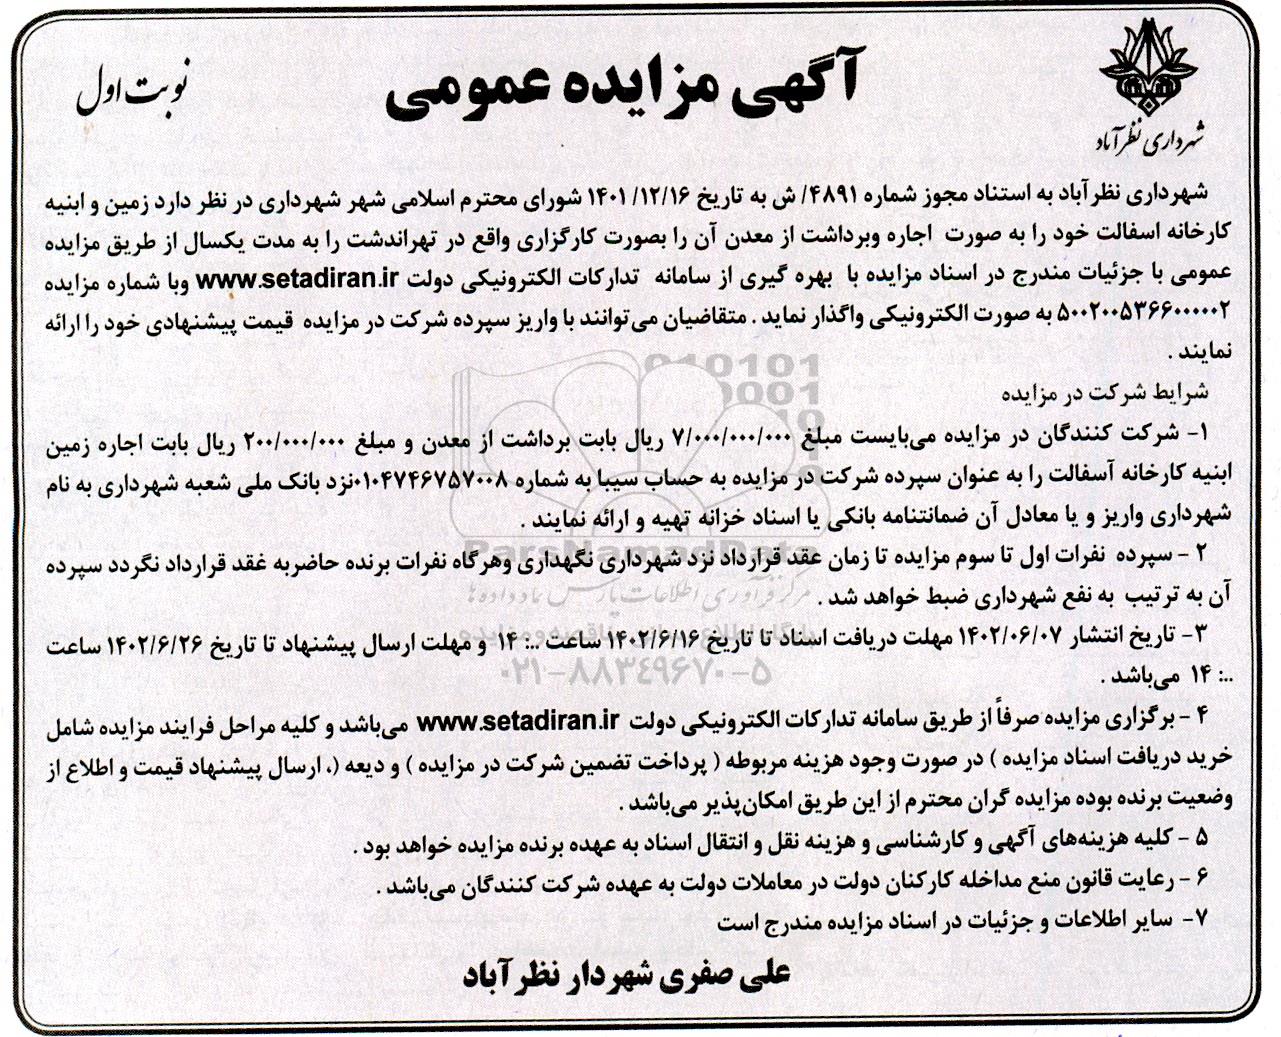 شهرداری نظرآباد
آگهی مزایده عمومی
نوبت اول
شهرداری نظرآباد به استناد مجوز شماره ۴۸۹۱/ ش به تاریخ ۱۴۰۱/۱۲/۱۶ شورای محترم اسلامی شهر شهرداری در نظر دارد زمین و ابنیه
کارخانه اسفالت خود را به صورت اجاره وبرداشت از معدن آن را بصورت کارگزاری واقع در تهراندشت را به مدت یکسال از طریق مزایده
عمومی با جزئیات مندرج در اسناد مزایده با بهره گیری از سامانه تدارکات الکترونیکی دولت www.setadiran.ir وبا شماره مزایده
۵۰۰۲۰۰۵۳۶۶۰۰۰۰۰۲ به صورت الکترونیکی واگذار نماید . متقاضیان می‌توانند با واریز سپرده شرکت در مزایده قیمت پیشنهادی خود را ارائه
نمایند .
شرایط شرکت در مزایده
۱- شرکت کنندگان در مزایده می‌بایست مبلغ ۷/۰۰۰/۰۰۰/۰۰۰ ریال بابت برداشت از معدن و مبلغ ۲۰۰/۰۰۰/۰۰۰ ریال بابت اجاره زمین
ابنیه کارخانه آسفالت را به عنوان سپرده شرکت در مزایده به حساب سیبا به شماره ۰۱۰۴۷۴۶۷۵۷۰۰۸نزد بانک ملی شعبه شهرداری به نام
شهرداری واریز و یا معادل آن ضمانتنامه بانکی یا اسناد خزانه تهیه و ارائه نمایند .
۲ - سپرده نفرات اول تا سوم مزایده تا زمان عقد قرارداد نزد شهرداری نگهداری وهرگاه نفرات برنده حاضربه غقد قرارداد نگردد سپرده
آن به ترتیب به نفع شهرداری ضبط خواهد شد .
۳- تاریخ انتشار ۱۴۰۲/۰۶/۰۷ مهلت دریافت اسناد تا تاریخ ۱۴۰۲/۶/۱۶ ساعت ..: ۱۴ و مهلت ارسال پیشنهاد تا تاریخ ۱۴۰۲/۶/۲۶ ساعت
..: ۱۴ می‌باشد .
۴ - برگزاری مزایده صرفاً از طریق سامانه تدارکات الکترونیکی دولت www.setadiran.ir می‌باشد و کلیه مراحل فرایند مزایده شامل
خرید دریافت اسناد مزایده ) در صورت وجود هزینه مربوطه ( پرداخت تضمین شرکت در مزایده ) و دیعه (، ارسال پیشنهاد قیمت و اطلاع از
وضعیت برنده بوده مزایده گران محترم از این طریق امکان‌پذیر می‌باشد .
۵ - کلیه هزینه‌های آگهی و کارشناسی و هزینه نقل و انتقال اسناد به عهده برنده مزایده خواهد بود .
۶ - رعایت قانون منع مداخله کارکنان دولت در معاملات دولت به عهده شرکت کنندگان می‌باشد .
۷- سایر اطلاعات و جزئیات در اسناد مزایده مندرج است
علی صفری شهردار نظرآباد
ParsNamadData
مرکز فرآوری اطلاعات پارس نماد داده‌ها
۰۲۱-۸۸۳۴۹۶۷۰-۵